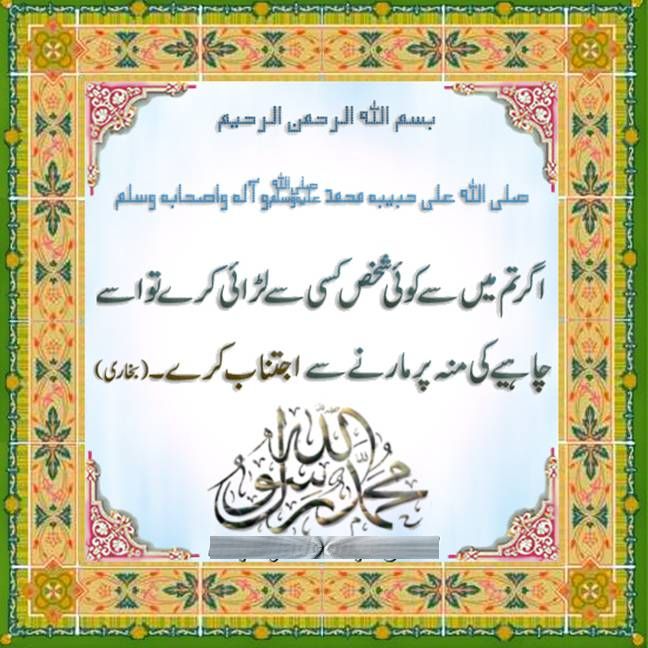 بسم الله الرحمن الرحيم
صلی الله علی حبیبه محمد ﷺ و آله واصحابه وسلم
اگر تم میں سے کوئی شخص کسی سے لڑائی کرے تو اسے
چاہیے کی منہ پر مارنے سے اجتناب کرے۔ (بخاری)
محمد رسول الله